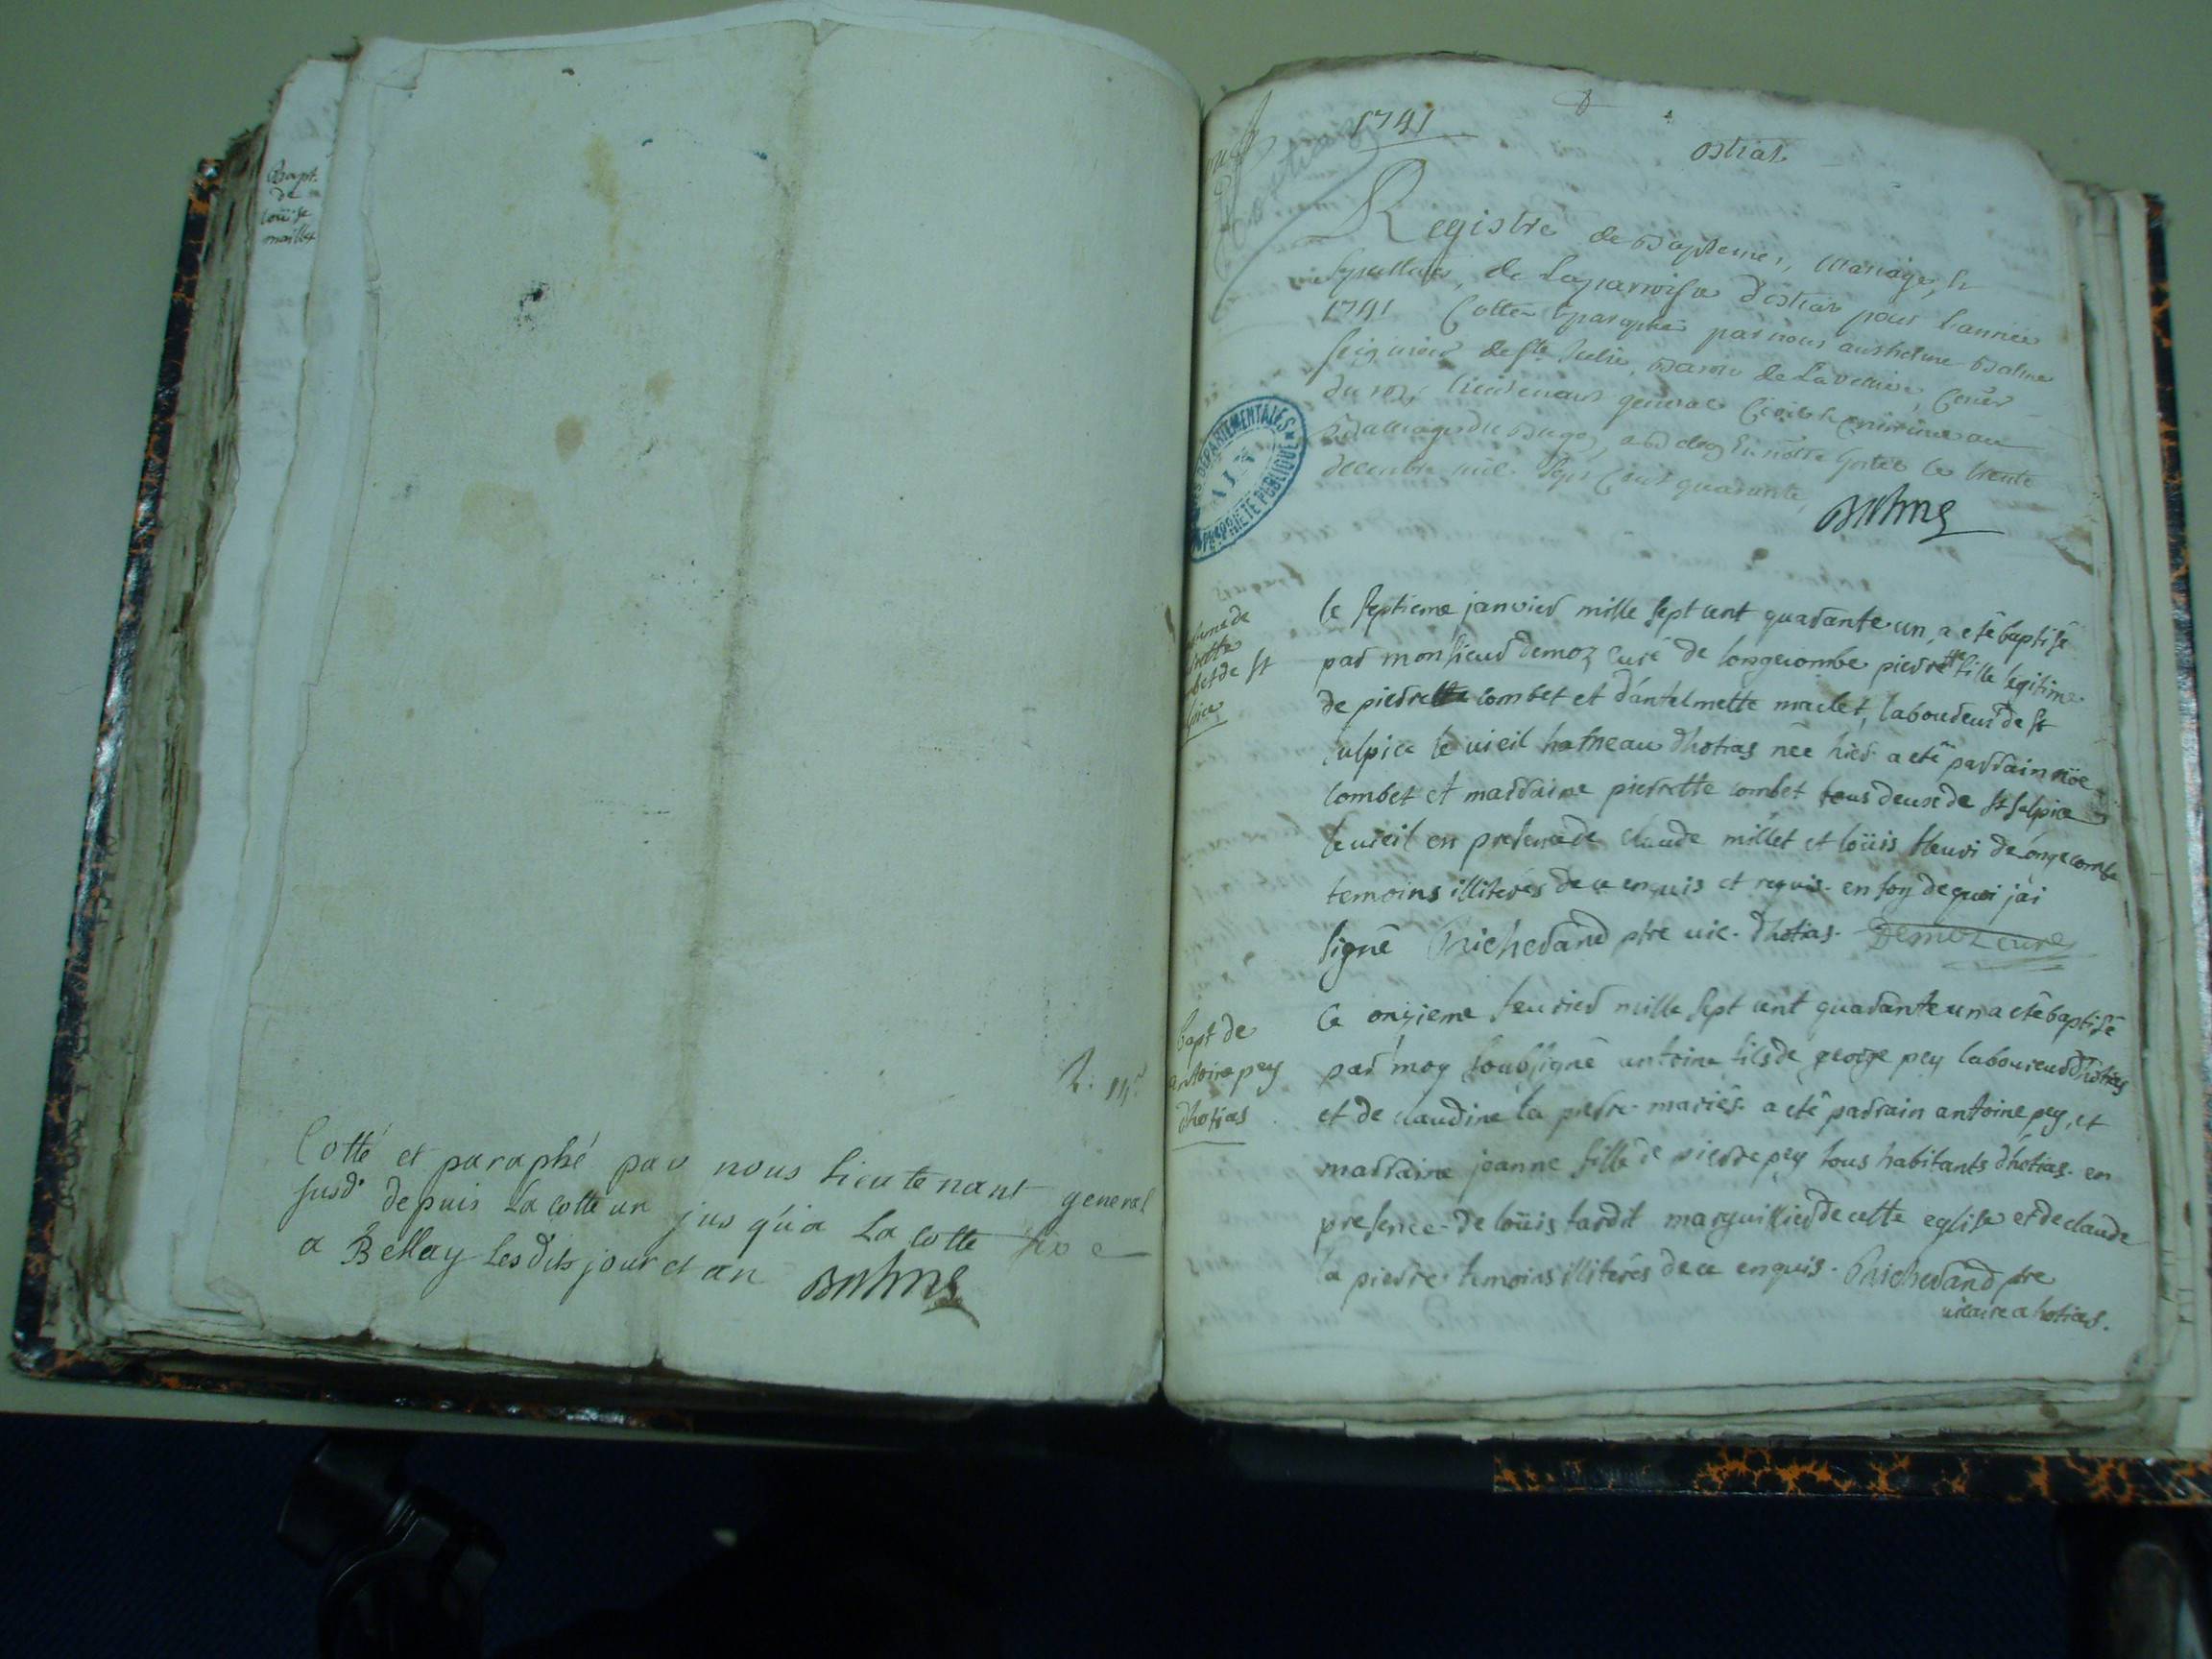 Bapt.
de
loüise
maillet
Cotté et paraphé par nous Lieutenant general
susd. depuis La cotte un jus qu'a La cotte
a Bellay Lesdits jour et an Balme
1741
ostias
Registre de Baptemes, Mariages, &
sepultures, de La parroisse d'ostias pour l'année
1741 Cotté & paraphé par nous anthelme Balme
seigneur de Ste Julie, Baron de La velliere, Coner
du roy, lieutenant general Civil & criminel au
Balliage du Bugey, a Belley En nôtre hotel le trente
decembre mil sept Cent quarante,
Balme
ARCHIVES DEPARTEMENTALES
AIN
PROPRIETE PUBLIQUE
le septieme janvier mille sept cent quarante un, a eté baptisé
par monsieur demoz curé de longecombe pierrette fille legitime
de pierre combet et d'antelmette maclet, laboureur de st
sulpice le vieil hameau d'hotias née hier a eté parrain
combet et marraine pierrette combet tous deux de st sulpice
le vieil en presence de claude millet et loüis fleuri de longecombe
temoins illiterés de ce enquis et requis. en foy de quoi j'ai
signé Richerand ptre vic. d'hotias. Demoz curé
bapt de
antoine pey
d'hotias
Le onzieme feurier mille sept cent quarante un a eté baptisé
par moy soubsigné antoine fils de george pey laboureur d'hotias
et de claudine la pierre mariés. a eté parrain antoine pey, et
marraine jeanne fille de pierre pey tous habitants d'hotias. en
presence de loüis tardit marguillier de cette eglise et de claude
la pierre temoins illiterés de ce enquis. Richerand ptre
vicaire a hotias.